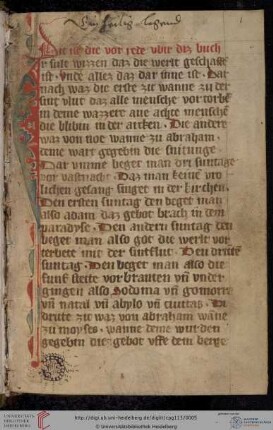 Ein heilig legend
Hie ist die vor rede vbir diz buch
ir sult wizzen daz die werlt geschaffē
ist · vnde allez daz dar inne ist · Dar
nach waz die erste zit wanne zu der
sint vlut daz alle mensche vor torbē
in deme wazzere ane achte menschē
die blibin in der archen · Die andere
waz von noe wanne zu abraham ·
deme wart gegebin die snitunge ·
Dar vmme beget man dri suntage
vor vastnacht · Daz man keine vro
lichen gesang singet in der kirchen ·
Den ersten suntag den beget man
also adam daz gebot brach in dem
paradyse · Den andern suntag den
beget man also got die werlt vor
terbete mit der sintflut · Den drittē
suntag · Den beget man also die
funf stette vor branten vn̄ vnder
gingen also Sodoma vn̄ gomorra
vn̄ · Di
dritte zit waz von abraham wāne
zu moyses · wanne deme wurden
gegeben die gebot vffe dem berge
http://digi.ub.uni-heidelberg.de/diglit/cpg113/0005
© Universitätsbibliothek Heidelberg